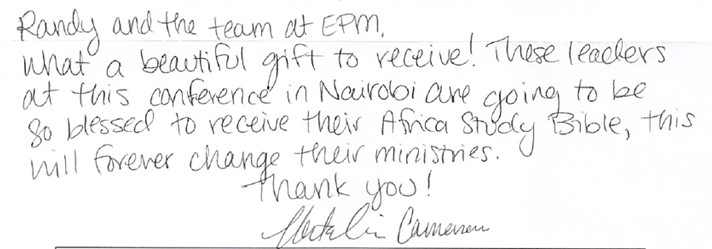 Randy and the team at EPM,
What a beautiful gift to receive! These leaders
at this conference in Nairobi are going to be
so blessed to receive their Africa Study Bible, this
will forever change their ministries.
Thank you!
Natalie Cameron